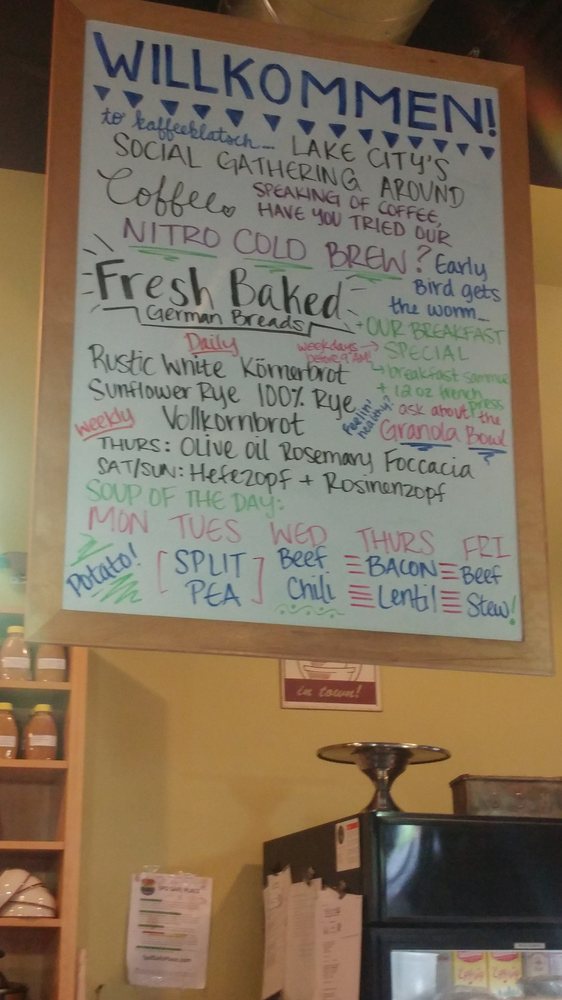 WILLKOMMEN!
to kaffeeklatsch... LAKE CITY'S
SOCIAL GATHERING AROUND
Coffee
SPEAKING OF COFFEE,
HAVE YOU TRIED OUR
NITRO COLD BREW?
Early
Bird gets
the worm...
Fresh Baked
German Breads
+ OUR BREAKFAST
SPECIAL
weekdays
before 9 AM!
breakfast sammie
+ 12 oz french
press
Daily
Rustic White Körnerbrot
Sunflower Rye 100% Rye
Vollkornbrot
Feelin'
healthy?
ask about the
Granola Bowl
Weekly
THURS: Olive Oil Rosemary Foccacia
SAT/SUN: Hefezopf + Rosinenzopf
SOUP OF THE DAY:
MON TUES WED THURS FRI
Potato!
SPLIT
PEA
Beef
Chili
BACON
Lentil
Beef
Stew!
in town!
SPD SAFE PLACE